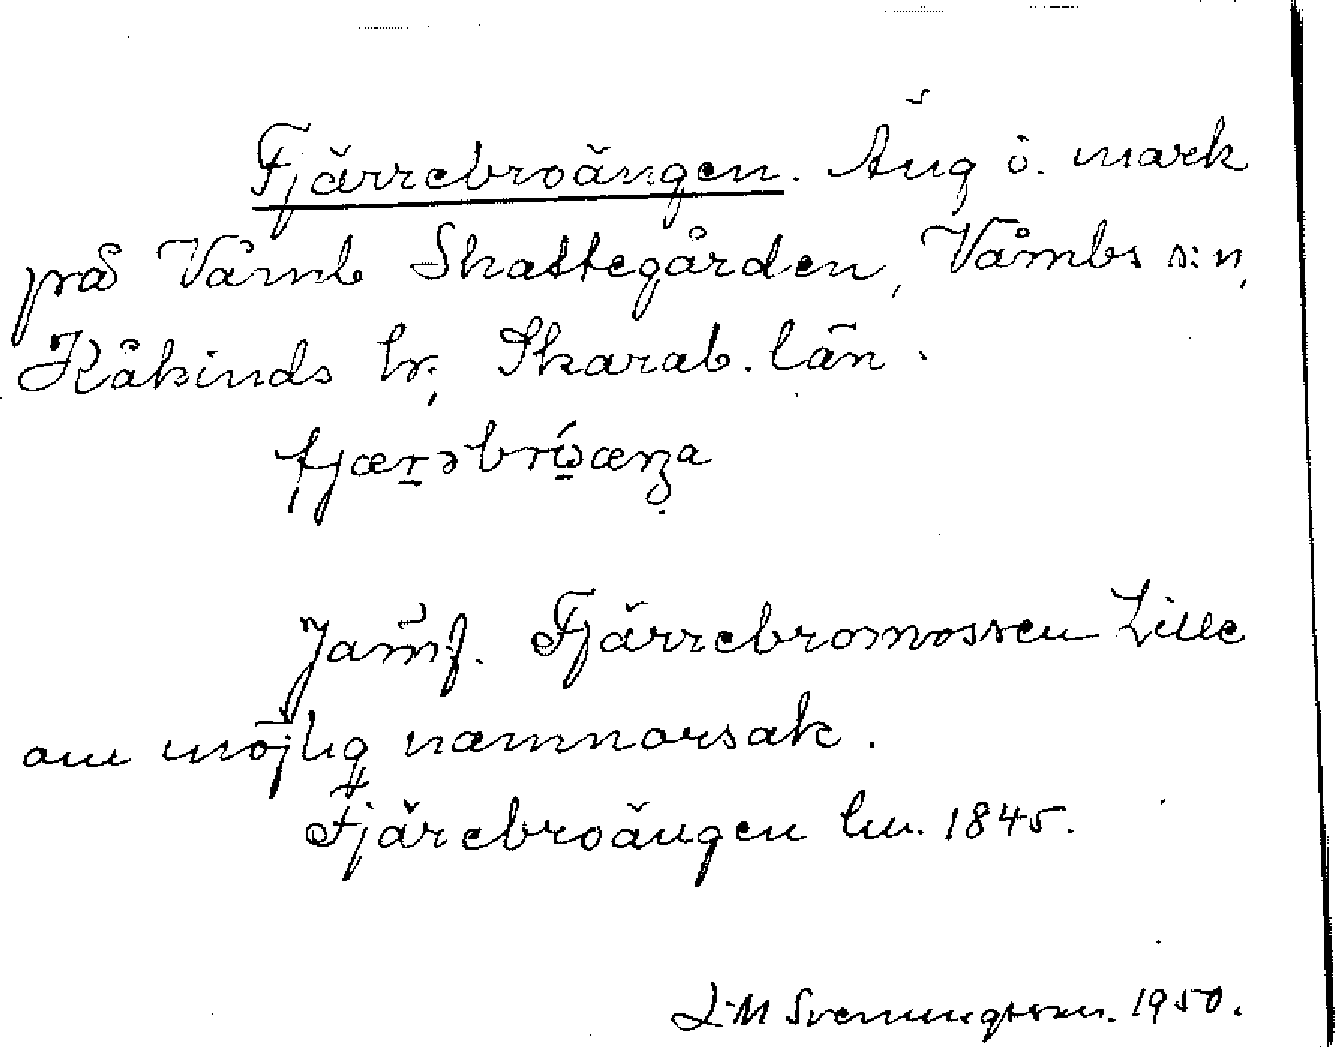 Fjärrebroängen. Äng o. mark
på Våmb Skattegården, Våmbs s:n,
Kåkinds hr, Skarab. län.
fjærəbrɷ́æŋa
Jämf. Fjärrebromossen Lille
om möjlig namnorsak.
Fjärebroängen lm. 1845.
L-M Svenungsson. 1950.